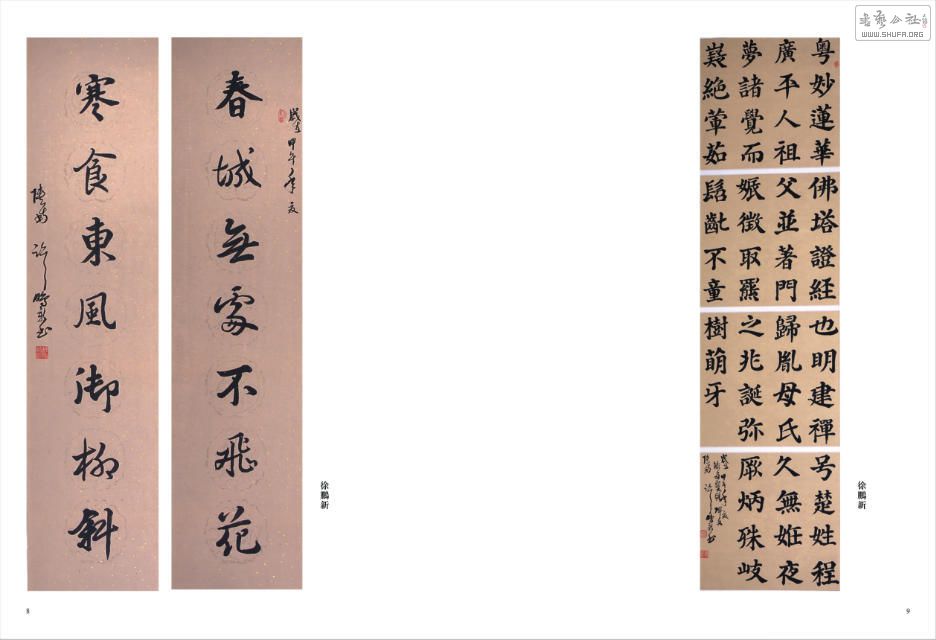 書藝公社
WWW.SHUFA.ORG
春城無處不飛花
歲在甲午年夏
寒食東風御柳斜
徐鵬新
8
粤妙蓮華佛塔證経也明建禪号楚姓程
廣平人祖父並著門歸胤母氏久無妊夜
夢諸覺而娠徵取羆之兆誕弥厥炳殊岐
嶷絶葷茹髫齔不童樹萌牙
徐鵬新
9